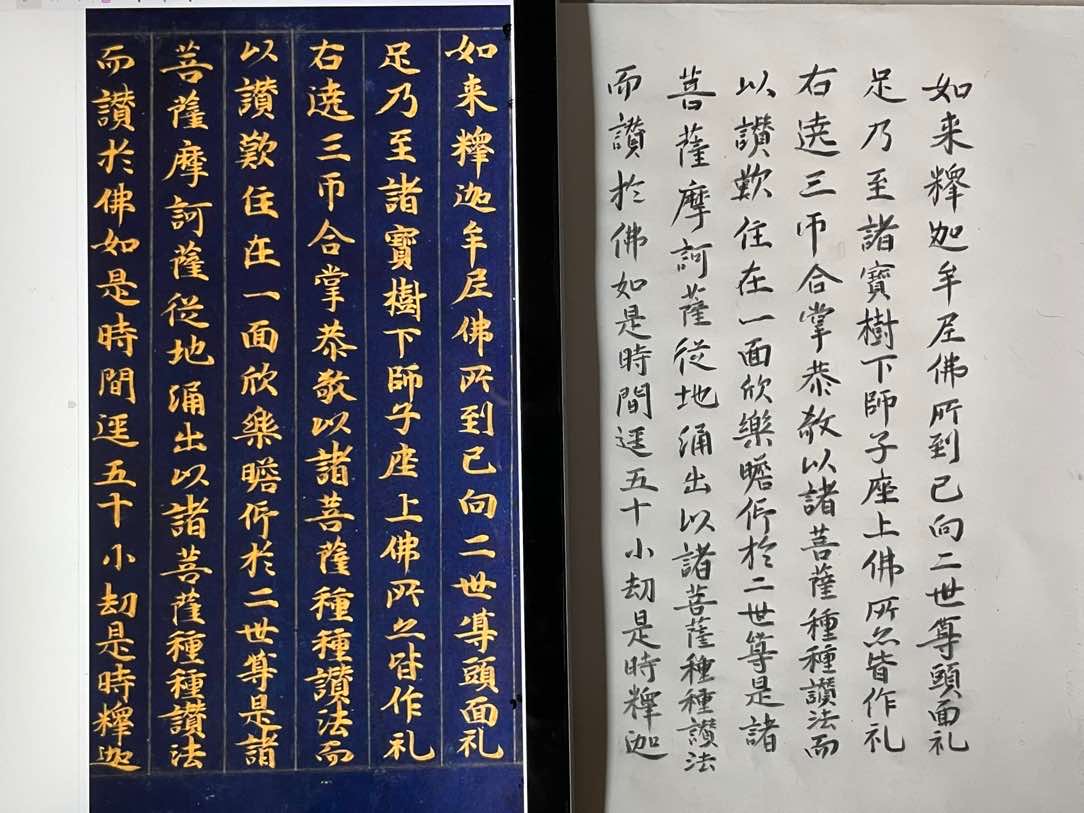 如来釋迦牟尼佛所到已向二世尊頭面礼
足乃至諸寶樹下師子座上佛所亦皆作礼
右遶三帀合掌恭敬以諸菩薩種種讃法而
以讃歎住在一面欣樂瞻仰於二世尊是諸
菩薩摩訶薩従地涌出以諸菩薩種種讃法
而讃於佛如是時間逕五十小劫是時釋迦
如来釋迦牟尼佛所到已向二世尊頭面礼
足乃至諸寶樹下師子座上佛所亦皆作礼
右遶三帀合掌恭敬以諸菩薩種種讃法而
以讃歎住在一面欣樂瞻仰於二世尊是諸
菩薩摩訶薩従地涌出以諸菩薩種種讃法
而讃於佛如是時間逕五十小劫是時釋迦